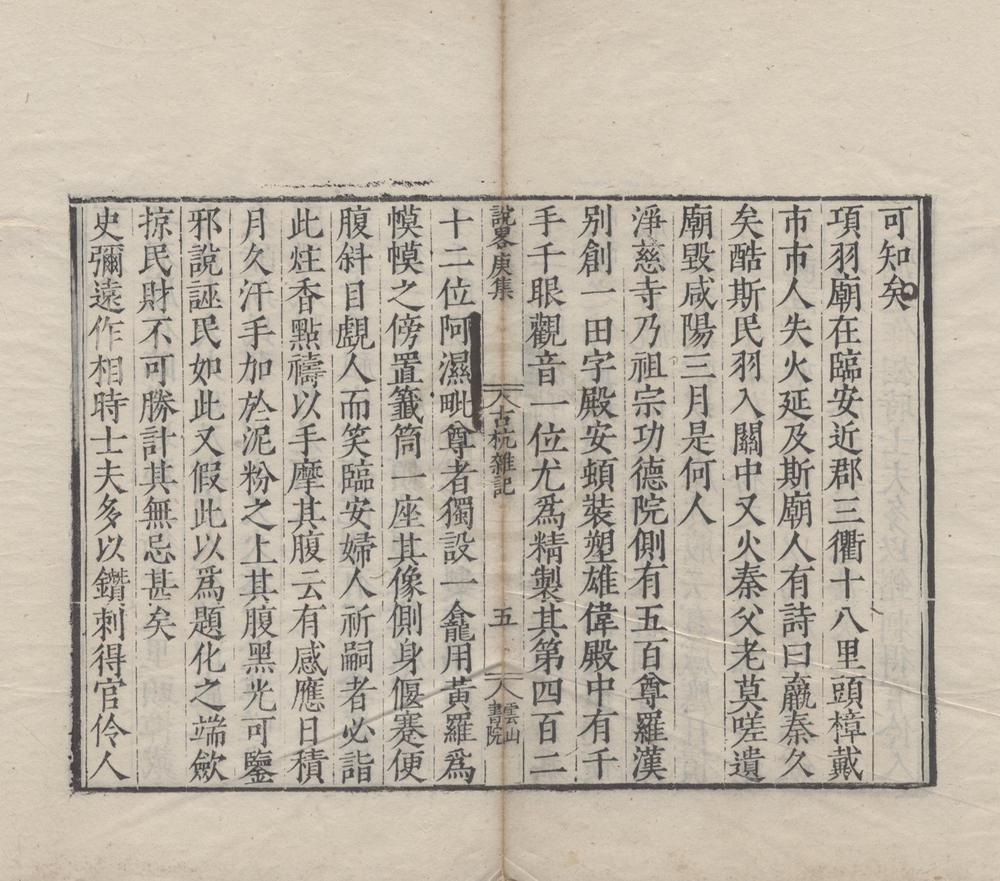 可知矣
項羽廟在臨安近郡三衢十八里頭樟戴
市市人失火延及斯廟人有詩曰嬴秦久
矣酷斯民羽入關中又火秦父老莫嗟遺
廟毀咸陽三月是何人
淨慈寺乃祖宗功德院側有五百尊羅漢
別創一田字殿安頓裝塑雄偉殿中有千
手千眼觀音一位尤爲精製其第四百二
說畧庚集 古杭雜記 五 雲山書院
十二位阿濕毗尊者獨設一龕用黃羅爲
幙幙之傍置籤筒一座其像側身偃蹇便
腹斜目覷人而笑臨安婦人祈嗣者必詣
此炷香點禱以手摩其腹云有感應日積
月久汗手加於泥粉之上其腹黑光可鑒
邪說誣民如此又假此以爲題化之端歛
掠民財不可勝計其無忌甚矣
史彌遠作相時士夫多以鑽刺得官伶人